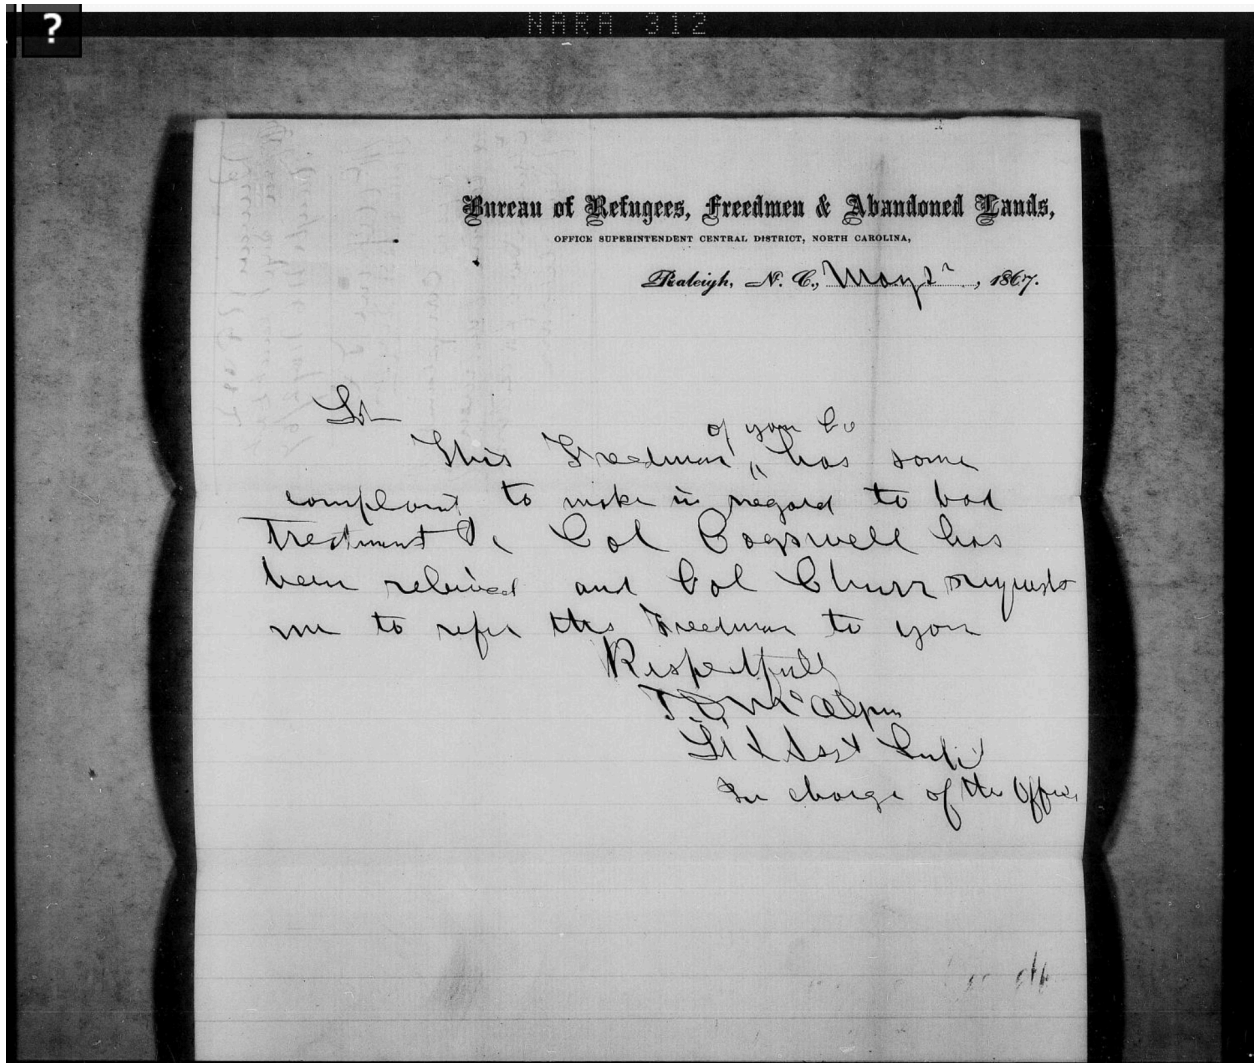 ?
NARA 312
Bureau of Refugees, Freedmen & Abandoned Lands,
OFFICE SUPERINTENDENT CENTRAL DISTRICT, NORTH CAROLINA,
Raleigh, N. C., May 2", 1867.
of your Co
This Freedman " has some
complaint to make in regard to bad
treatment &c Col Cogswell has
been relieved and Col Churr requests
me to refer this Freedman to you
Respectfully
McAlpin
Lt & Asst Supt
In charge of the Office